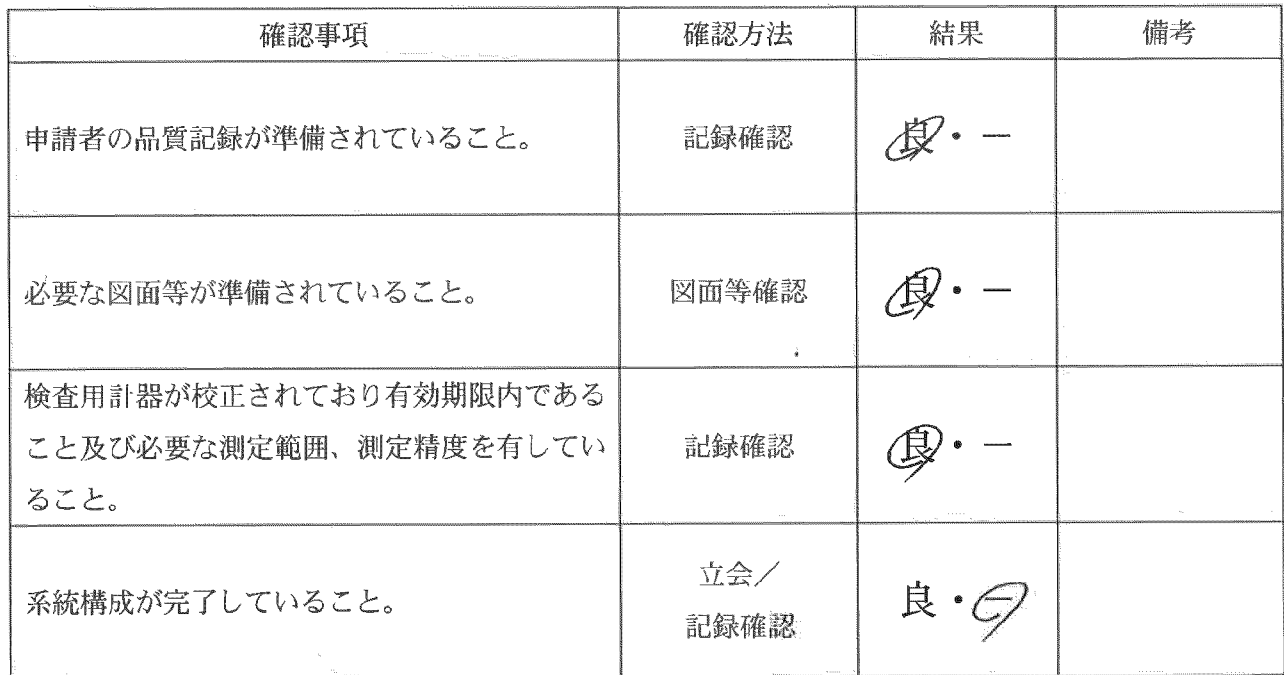 確認事項 確認方法 結果 備考
申請者の品質記録が準備されていること。 記録確認 良・―
必要な図面等が準備されていること。 図面等確認 良・―
検査用計器が校正されており有効期限内である
こと及び必要な測定範囲、測定精度を有してい
ること。
記録確認 良・―
系統構成が完了していること。
立会/
記録確認
良・―